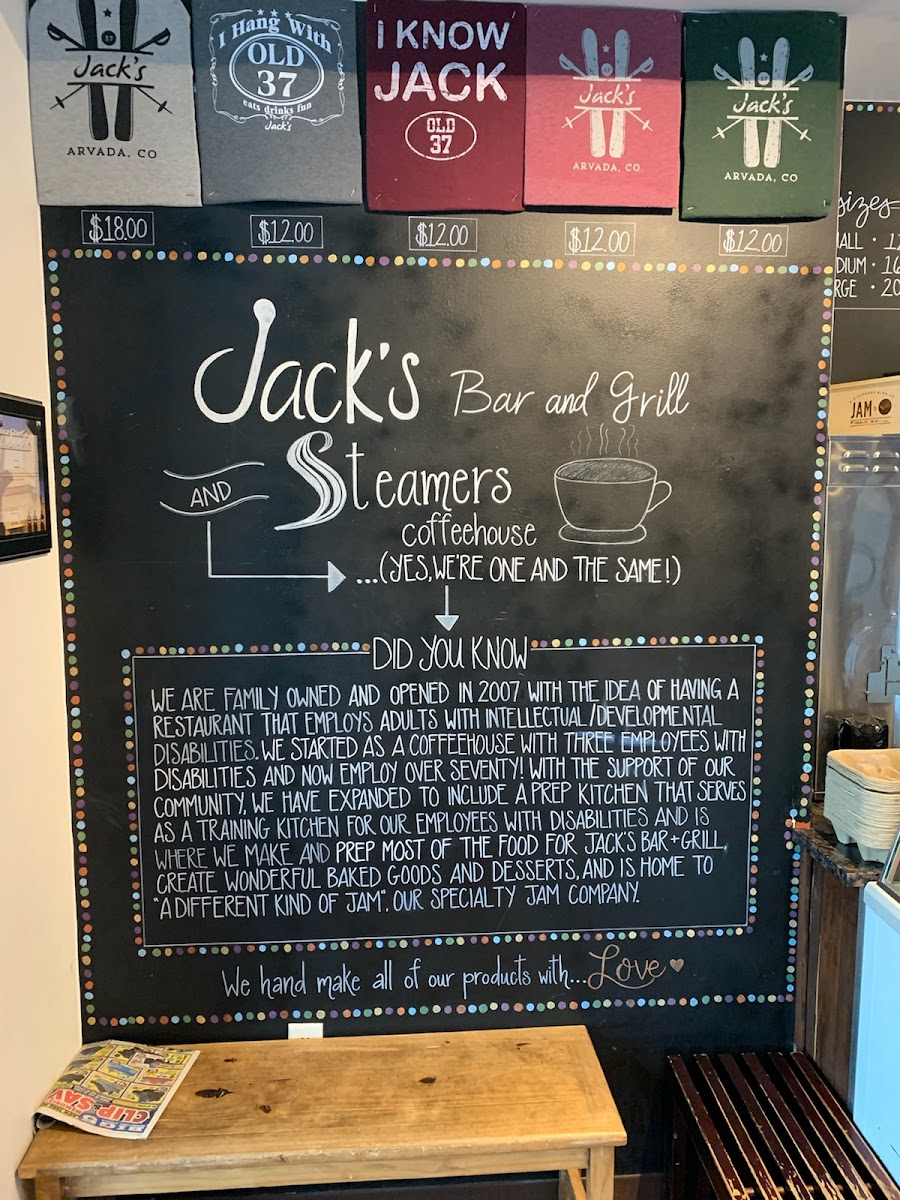 Jack's
ARVADA, CO
I Hang With
OLD
37
eats drinks fun
Jack's
I KNOW
JACK
OLD
37
Jack's
ARVADA, CO
Jack's
ARVADA, CO
$18.00
$12.00
$12.00
$12.00
$12.00
sizes
ALL · 12
DIUM · 16
RGE · 20
JAM
Jack's Bar and Grill
AND Steamers
coffeehouse
...(YES, WE'RE ONE AND THE SAME!)
DID YOU KNOW
WE ARE FAMILY OWNED AND OPENED IN 2007 WITH THE IDEA OF HAVING A
RESTAURANT THAT EMPLOYS ADULTS WITH INTELLECTUAL/DEVELOPMENTAL
DISABILITIES. WE STARTED AS A COFFEEHOUSE WITH THREE EMPLOYEES WITH
DISABILITIES AND NOW EMPLOY OVER SEVENTY! WITH THE SUPPORT OF OUR
COMMUNITY, WE HAVE EXPANDED TO INCLUDE A PREP KITCHEN THAT SERVES
AS A TRAINING KITCHEN FOR OUR EMPLOYEES WITH DISABILITIES AND IS
WHERE WE MAKE AND PREP MOST OF THE FOOD FOR JACK'S BAR+GRILL,
CREATE WONDERFUL BAKED GOODS AND DESSERTS, AND IS HOME TO
"A DIFFERENT KIND OF JAM", OUR SPECIALTY JAM COMPANY.
We hand make all of our products with... Love
BIG 5
CLIP & SAV